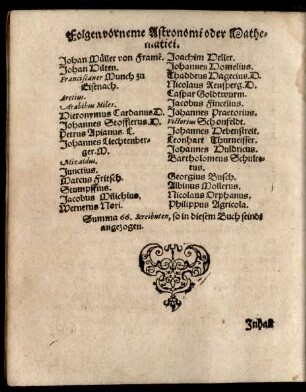 Folgen vorneme Astronomi oder Mathe-
matici.
Johan Müller von Franck.
Johan Hilten.
Franciscaner Munch zu
Eisenach.
Aretius.
Arabibus Miles.
Hieronymus Cardanus D.
Johannes Stofflerus. D.
Petrus Apianus. C.
Johannes Liechtenber-
ger. M.
Mizaldus.
Junctius.
Marcus Fritsch.
Stumpffius.
Jacobus Milichius.
Wernerus Nori.
Joachim Heller.
Johannes Homelius.
Thaddeus Hagecius. D.
Nicolaus D.
Caspar Goldtwurm.
Jacobus Fincelius.
Johannes Praetorius.
Victorius Schonfeldt.
Johannes Hebenstreit.
Leonhart Thurneisser.
Johannes Huldricus.
Bartholomeus Schulte-
tus.
Georgius Busch.
Albinus Mollerus.
Nicolaus Orphanus.
Philippus Agricola.
Summa 66. Scribenten, so in diesem Buch seinds
angezogen.
Inhalt